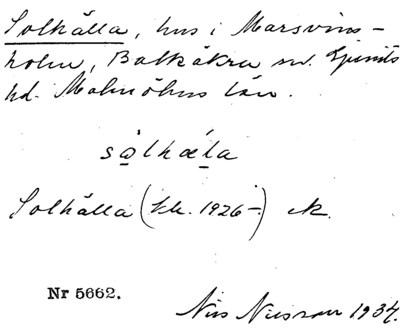 Solhälla, hus i Marsvins-
holm, Balkåkra sn. Ljunits
hd. Malmöhus län.
sòlhæ̀la
Solhälla (kk. 1926-) ek.
Nr 5662.
Nils Nilsson 1934.